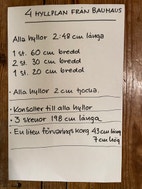 4 HYLLPLAN FRÅN BAUHAUS
Alla hyllor 2.48 cm långa
1 st. 60 cm bredd
2 st. 30 cm bredd
1 st. 20 cm bredd
• Alla hyllor 2 cm tjocka.
• Konsoller till alla hyllor
• 3 skenor 198 cm långa
• En liten förvarings korg 43 cm lång
7 cm hög